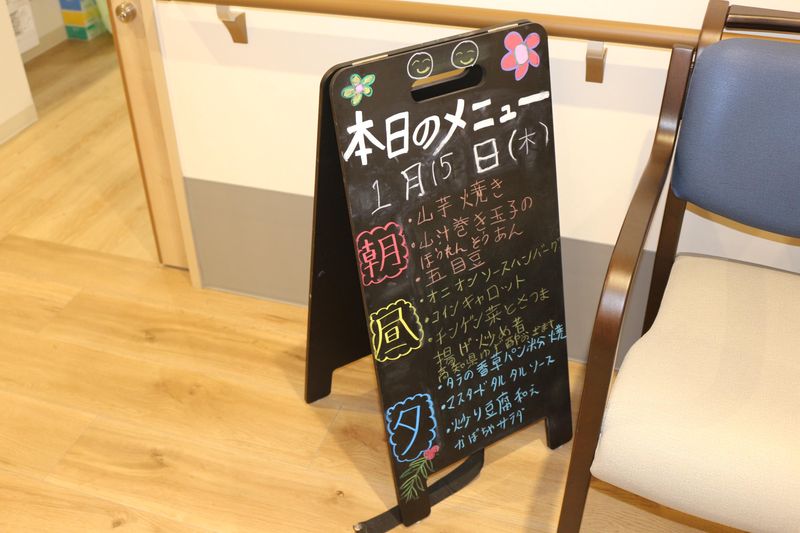 本日のメニュー
1月15日(木)
朝
・山芋焼き
・出汁巻き玉子の
ほうれんそうあん
・五目豆
昼
・オニオンソースハンバーグ
・コインキャロット
・チンゲン菜と〆つま
揚げ炒め煮
高知県ゆず
夕
・タラの香草パン粉焼
・マスタードタルタルソース
・炒り豆腐和え
かぼちゃサラダ